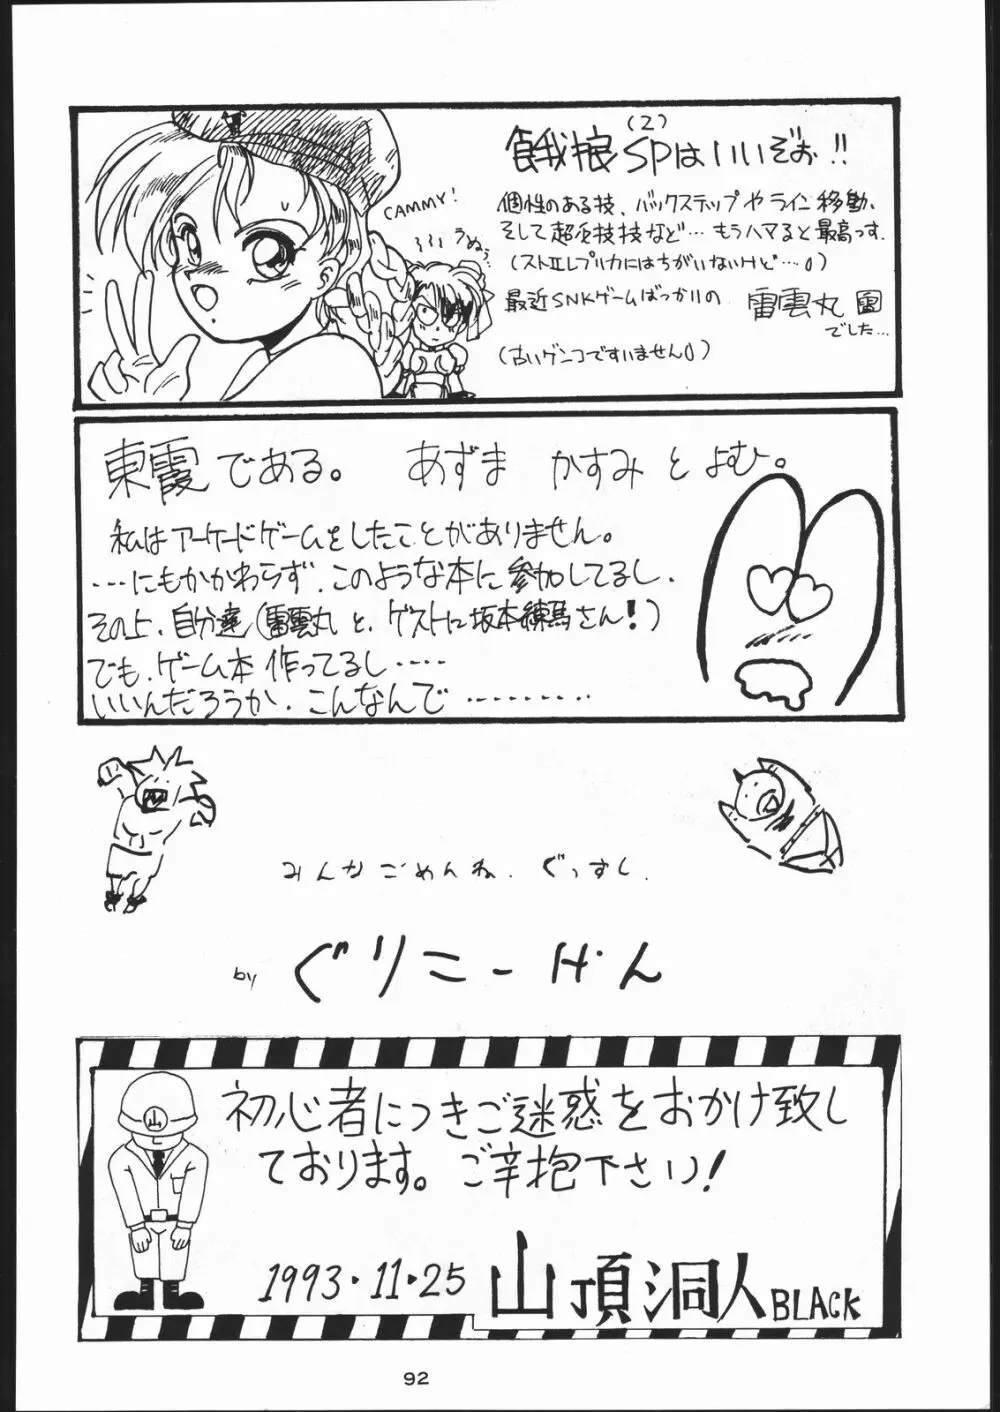 (2)
餓狼SPはいいぞぉ!!
CAMMY!
うぬぅ…
個性のある技、バックステップやライン移動、
そして超必技技など…もうハマると最高っす.
(ストⅡレプリカにはちがいないけど…。)
最近SNKゲームばっかりの 雷雲丸
でした…
(古いゲンコですいません。)
東霞である。 あずま かすみ とよむ。
私はアーケードゲームをしたことがありません。
…にもかかわらず、このような本に参加してるし、
その上、自分達(雷雲丸と、ゲストに坂本練馬さん!)
でも、ゲーム本作ってるし……
いいんだろうか、こんなんで………
みんなごめんね. ぐっすし.
by ぐりこーけん
山
初心者につきご迷惑をおかけ致し
ております。ご辛抱下さい!
1993・11・25 山頂洞人BLACK
92